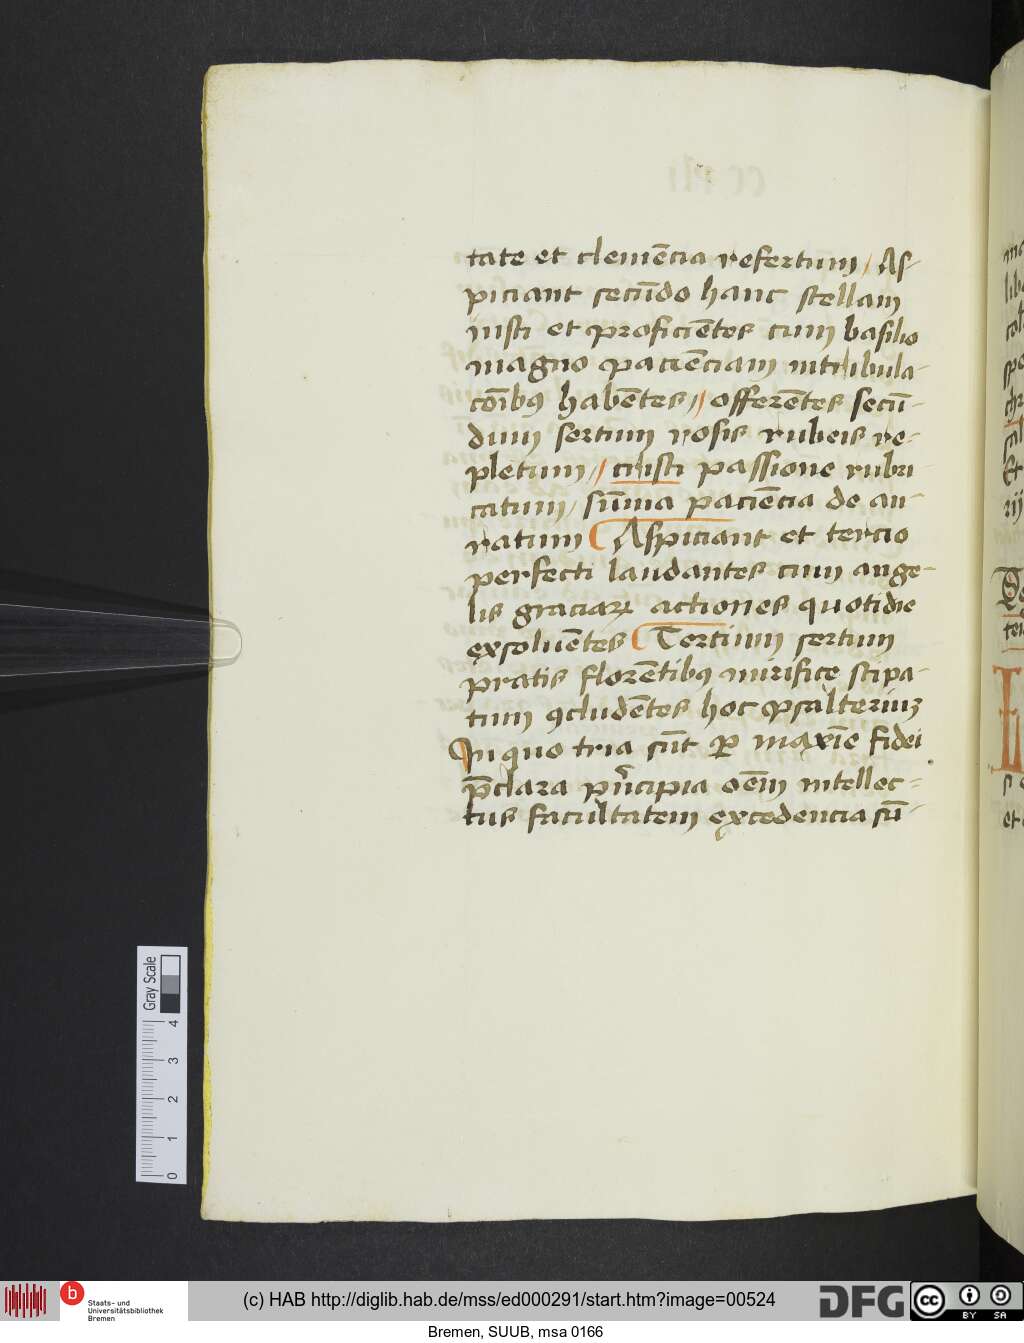 tate et clemēcia refertum / As-
piciant secūdo hanc stellam
iusti et proficiētes cum basilio
magno paciēciam in tribula-
cōibꝯ habētes // offerētes secū-
dum sertum rosis rubeis re-
pletum // cristi passione rubri-
catum / sūma paciēcia de au-
ratum Aspiciant et tercio
perfecti laudantes cum ange-
lis graciaꝝ actiones quotidie
exsoluētes Tertium sertum
pratis florētibꝯ mirifice stipa-
tum ꝯcludētes hoc psalteriuʒ
In quo tria sūt ꝑ maxīe fidei
p̄clara pn̄cipia oēm intellec-
tus facultatem excedencia sū-
Gray Scale
4
3
2
1
0
b
Staats- und
Universitätsbibliothek
Bremen
(c) HAB http://diglib.hab.de/mss/ed000291/start.htm?image=00524
DFG
cc
BY SA
Bremen, SUUB, msa 0166